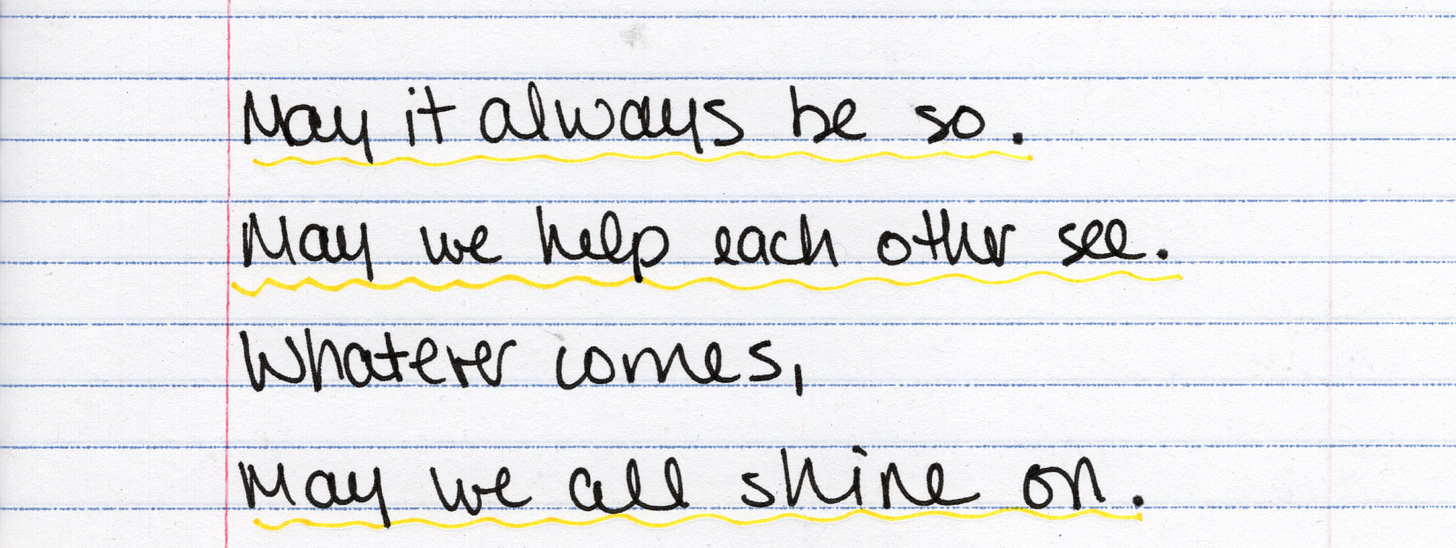 May it always be so.
May we help each other see.
Whatever comes,
May we all shine on.